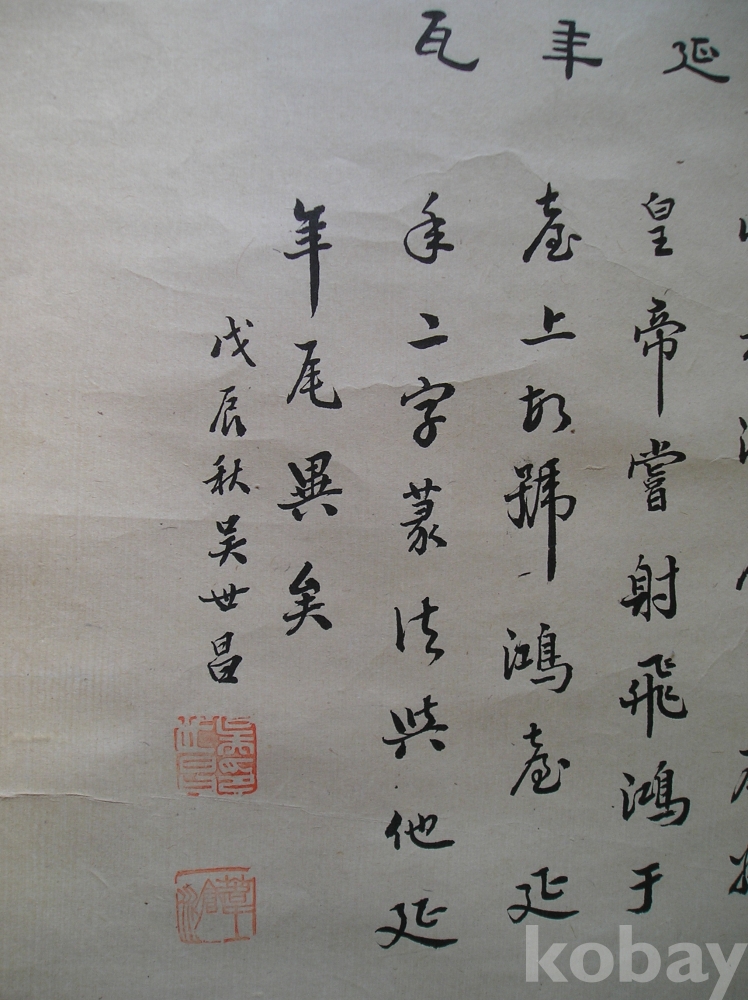 延年瓦
皇帝嘗射飛鴻于
臺上故號鴻臺延
年二字篆法與他延
年尾異矣
戊辰秋吴世昌
葦滄
kobay